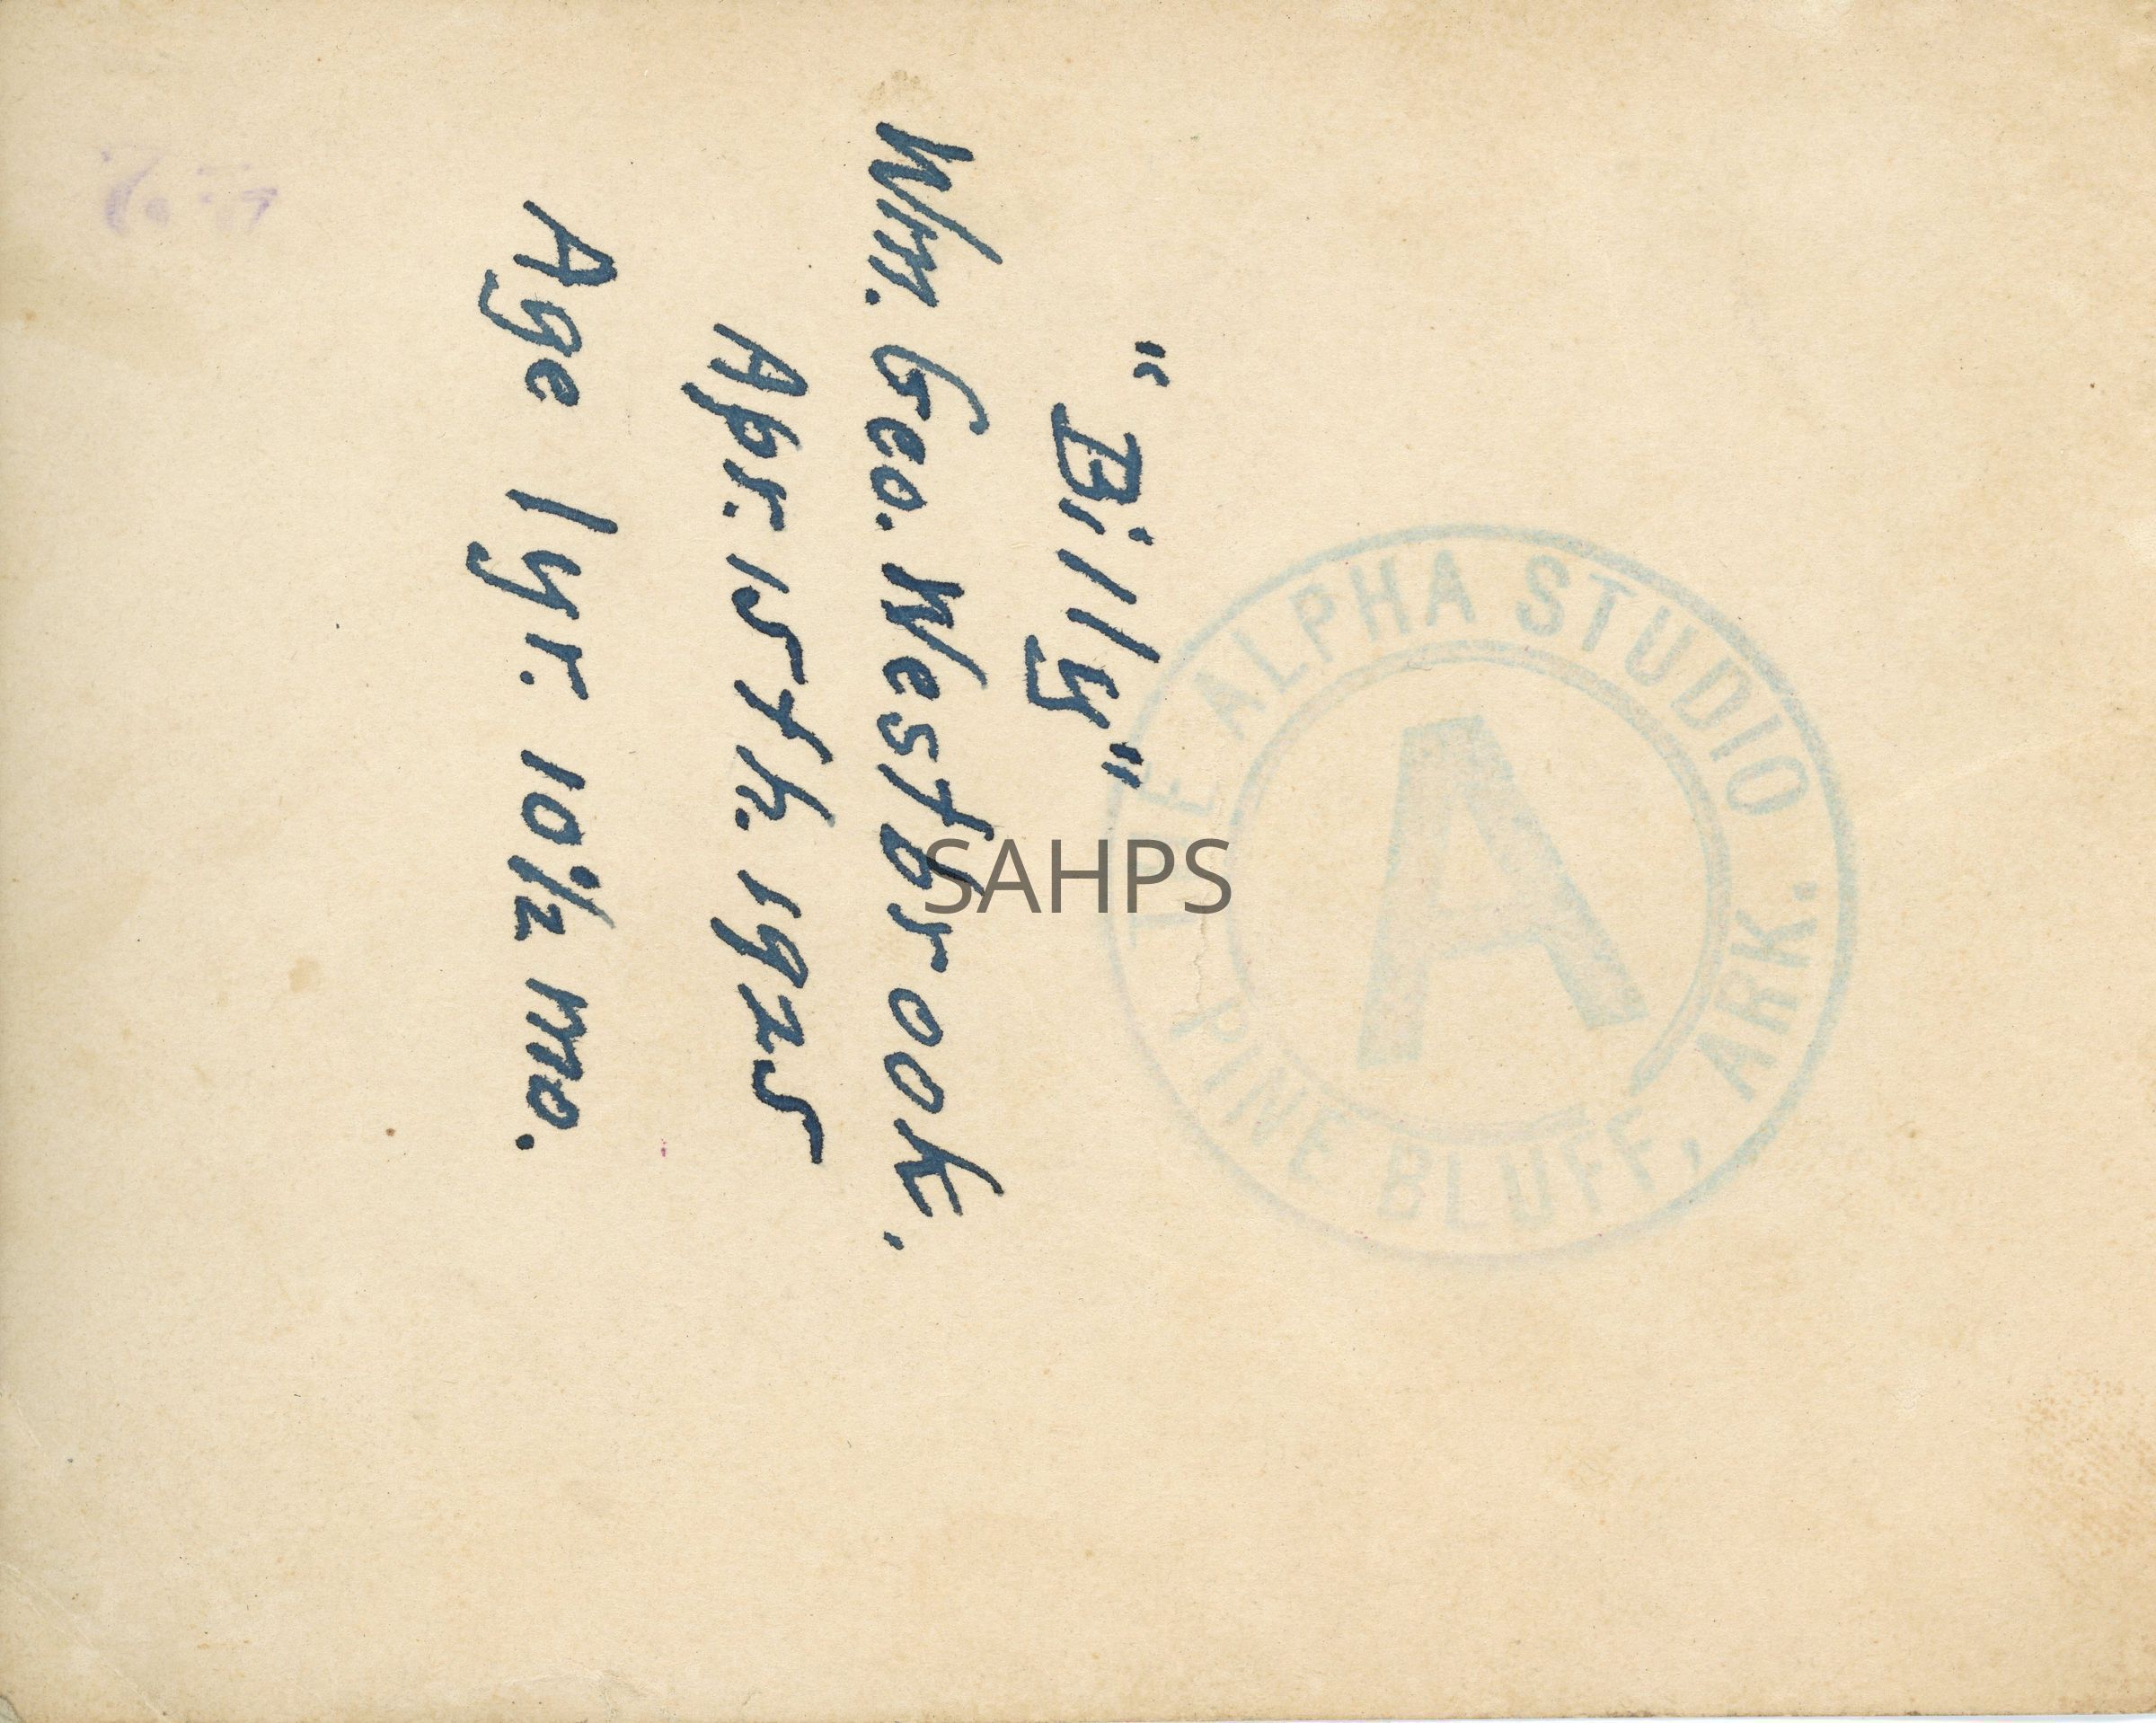 "Billy"
Wm. Geo. Westbrook.
Apr. 15th. 1925
Age 1 yr. 10 1/2 mo.
THE ALPHA STUDIO
A
PINE BLUFF, ARK.
SAHPS